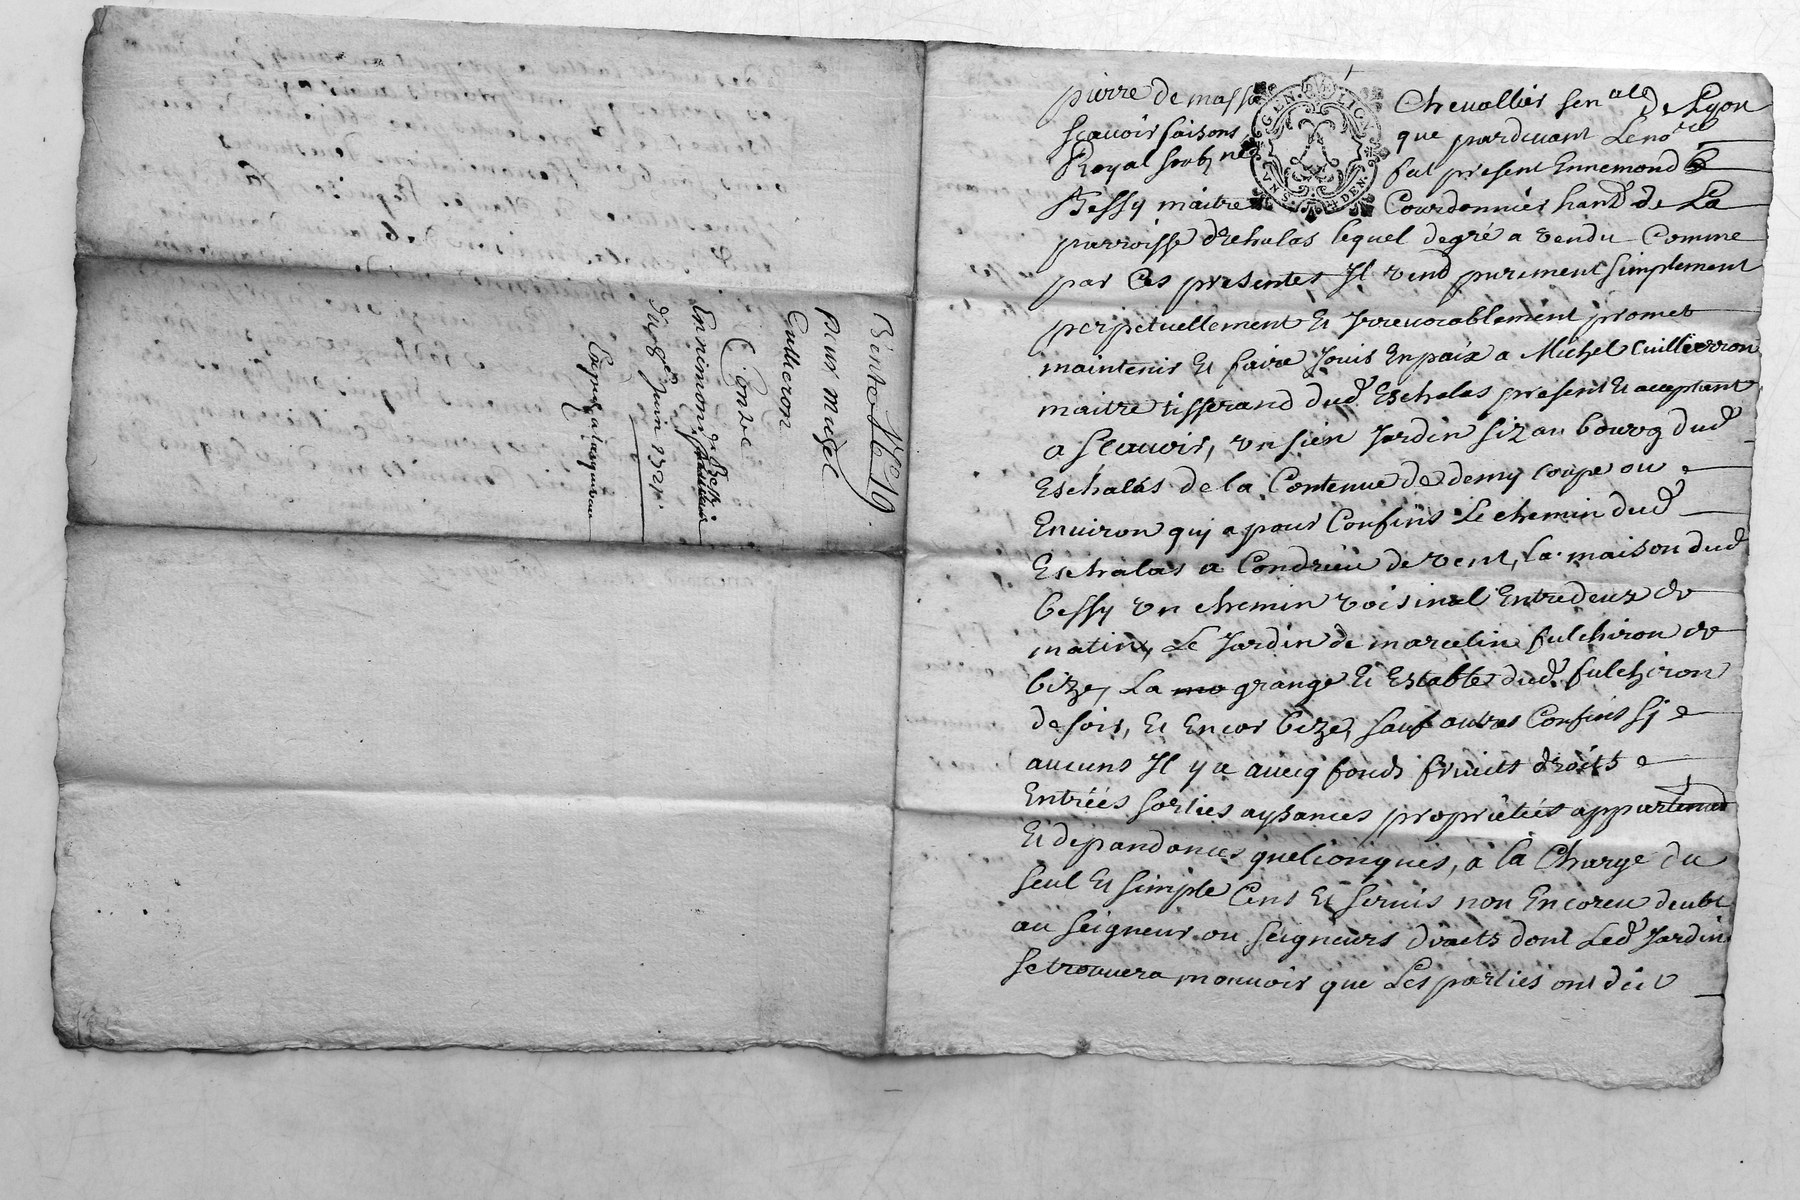 Vente N° 19.
Pour Michel
Cullieron
Contre
Ennemond Bessy
du 9e Juin 1721
pierre de masso Chevallier senal de Lyon
sçavoir faisons que pardevant Le nore
Royal soubzné fut présent Ennemond
Bessy maitre Courdonnier hant de La
parroisse d'Echalas lequel de gré a vendu Comme
par Ces presentes Il vend purement simplement
perpetuellement Et Irrevocablement promet
maintenir Et faire Jouir En paix a Michel Cuillierron
maitre tisserand dud Eschalas présent Et acceptant
a sCavoir, un sien Jardin siz au bourg dud
Eschalas de la Contenue de demy coupe ou
Environ qui a pour Confins Le chemin dud
Eschalas a Condrieu de vent, La maison dud
bessy un chemin voisinal Entredeux de
matin, Le Jardin de marcelin fulchiron de
bize, La grange Et Estable dud fulchiron
de soir, Et Encor bize, sauf autres Confins sy
aucuns Il y a avecq fonds fruits droits
Entrées sorties aysances proprietés appartenances
Et dependances quelconques, a la Charge du
seul Et simple Cens Et servis non Encoreu deubt
au seigneur ou seigneurs directs dont Led Jardin
se trouvera mouvoir que Les parties ont dit
GEN. LION